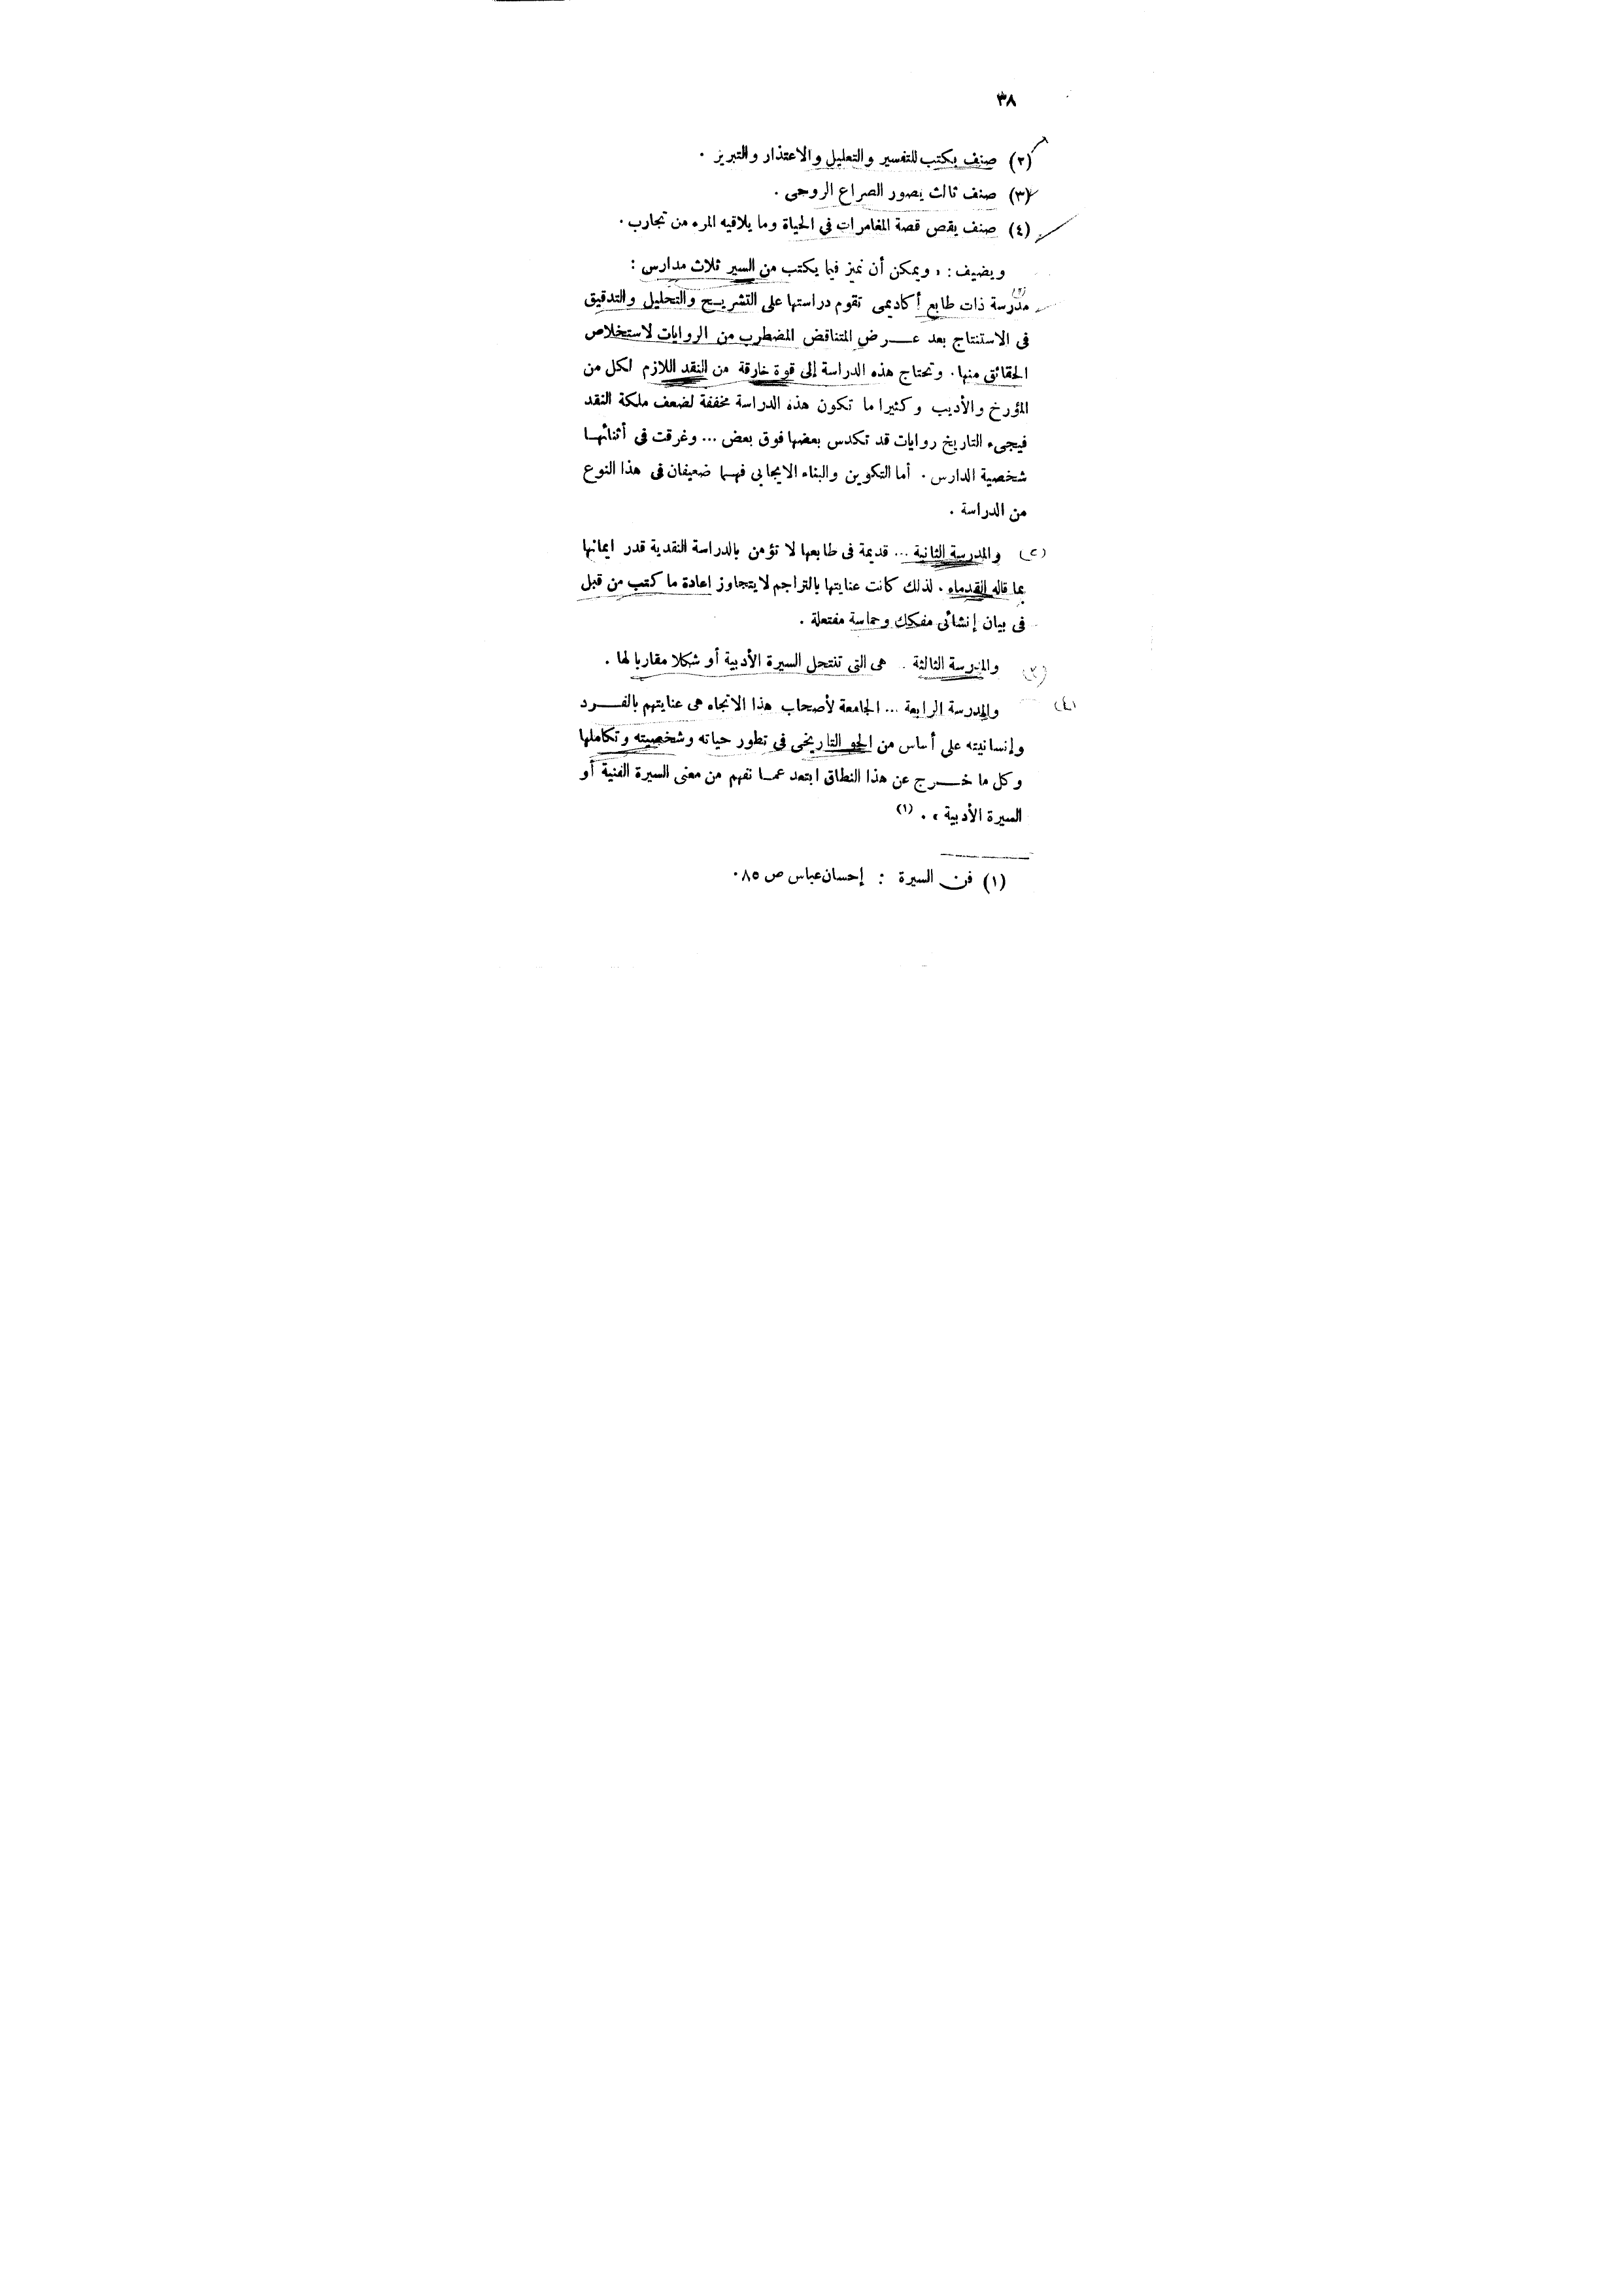 ٣٨
(٢) صنف يكتب للتفسير والتعليل والاعتذار والتبرير .
(٣) صنف ثالث يصور الصراع الروحى .
(٤) صنف يقص قصة المغامرات فى الحياة وما يلاقيه المرء من تجارب .
ويضيف : « ويمكن أن نميز فيما يكتب من السير ثلاث مدارس :
مدرسة ذات طابع أكاديمى تقوم دراستها على التشريح والتحليل والتدقيق
فى الاستنتاج بعد عرض المتناقض المضطرب من الروايات لاستخلاص
الحقائق منها . وتحتاج هذه الدراسة إلى قوة خارقة من النقد اللازم لكل من
المؤرخ والأديب وكثيرا ما تكون هذه الدراسة مخففة لضعف ملكة النقد
فيجىء التاريخ روايات قد تكدس بعضها فوق بعض ... وغرقت فى أثنائها
شخصية الدارس . أما التكوين والبناء الايجابى فهما ضعيفان فى هذا النوع
من الدراسة .
(٢) والمدرسة الثانية ... قديمة فى طابعها لا تؤمن بالدراسة النقدية قدر ايمانها
بما قاله القدماء . لذلك كانت عنايتها بالتراجم لا يتجاوز اعادة ما كتب من قبل
فى بيان إنشائى مفكك وحماسة مفتعلة .
(٣) والمدرسة الثالثة . هى التى تنتحل السيرة الأدبية أو شكلا مقاربا لها .
(٤) والمدرسة الرابعة ... الجامعة لأصحاب هذا الاتجاه هى عنايتهم بالفرد
وإنسانيته على أساس من الجو التاريخى فى تطور حياته وشخصيته وتكاملها
وكل ما خرج عن هذا النطاق ابتعد عما نفهم من معنى السيرة الفنية أو
السيرة الأدبية » . (١)
(١) فن السيرة : إحسان عباس ص ٨٥ .